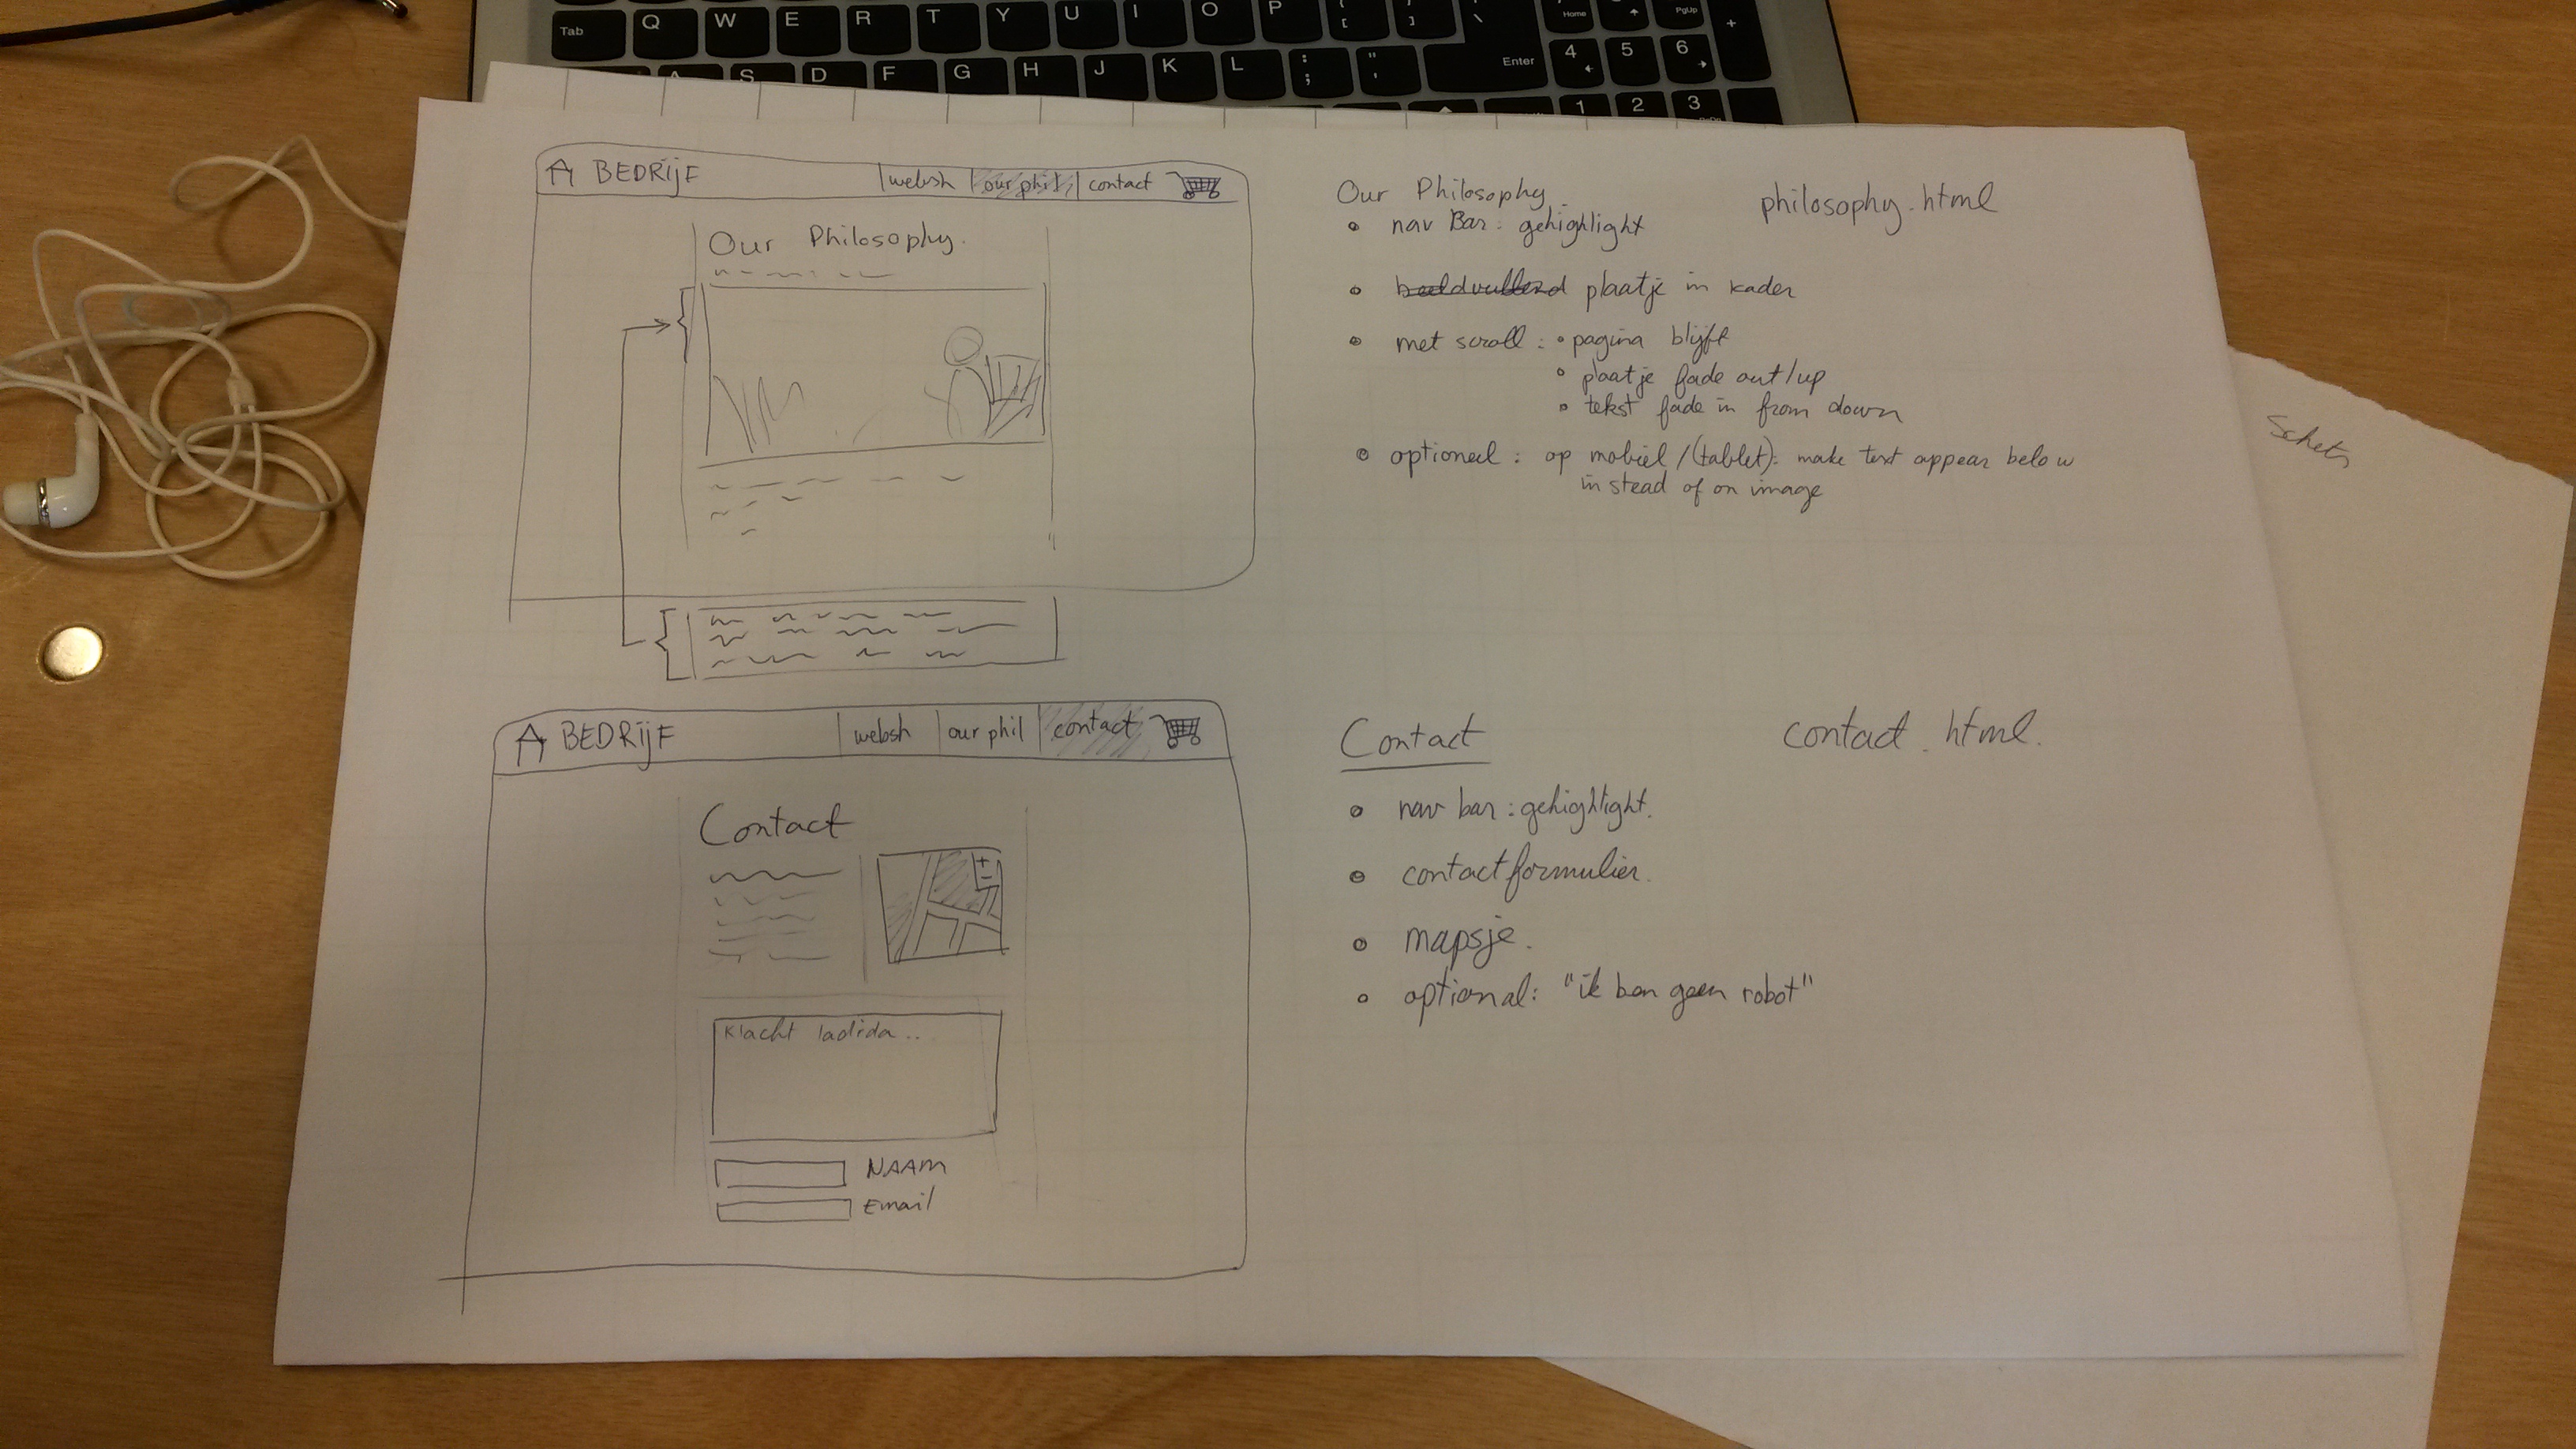 Tab Q W E R T Y U I O P { [ } ] \ Home PgUp +
A S D F G H J K L : ; " ' Enter 4 5 6
1 2 3
BEDRijF websh our phil contact
Our Philosophy.
Our Philosophy philosophy.html
nav Bar: gehighlight
beeldvullend plaatje in kader
met scroll: pagina blijft
plaatje fade out/up
tekst fade in from down
optioneel: op mobiel/(tablet): make text appear below
in stead of on image
Schets
BEDRijF websh our phil contact
Contact
+
-
Klacht ladida..
NAAM
Email
Contact contact.html.
nav bar: gehighlight.
contactformulier.
mapsje.
optional: "ik ben geen robot"